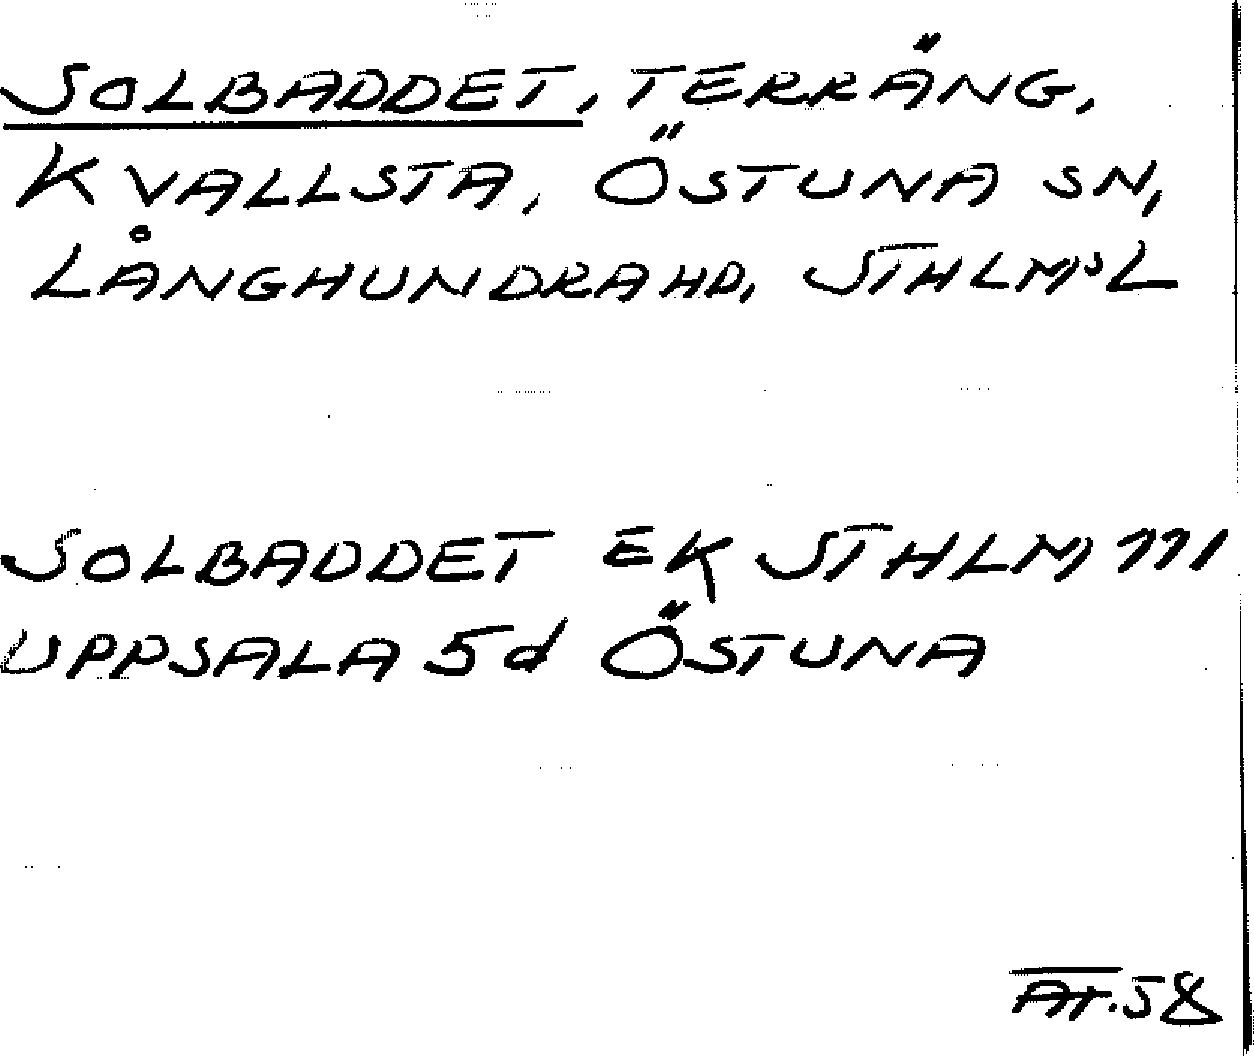 SOLBADDET, TERRÄNG,
KVALLSTA, ÖSTUNA SN,
LÅNGHUNDRA HD, STHLM'S L
SOLBADDET EK STHLM 111
UPPSALA 5d ÖSTUNA
58